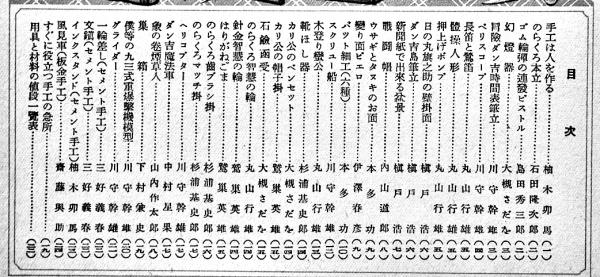 目次
手工は人を作る 柚木卯馬 (一)
のらくろ本立 石田隆次郎 (二)
ゴム輪彈の連發ピストル 島田秀三郎 (二)
幻燈器 大槻さだを (三)
冒險ダン吉時間表筆立 川守幹雄 (四)
ペリスコープ 川守幹雄 (四)
長笛と鶯笛 丸山行雄 (五)
押上げポンプ 丸山行雄 (五)
體操人形 丸山行雄
日の丸旗之助の壁掛面 槇戸浩
ダン吉島筆立 槇戸浩
新聞紙で出來る盆景 槇戸浩 (七)
戰鬪帽 内山道郎
ウサギとタヌキのお面 本多功 (九)
變り面ピエロ 伊澤春彦 (九)
バット細工(六種) 本多功
スクリュー船 川守幹雄
木登り蠻公 丸山行雄
靴ほし器 大槻さだを
カリ公のペンセット 杉浦基史郎
カリ公の帽子掛 鷲巣英雄
石鹸函受 大槻さだを
のらくろ智慧の輪 丸山行雄
針金智慧の輪 鷲巣英雄
はりがねごま 鷲巣英雄
のらくろ歯ブラシ掛 杉浦基史郎
のらくろマッチ掛 杉浦基史郎
ヘリコプター 川守幹雄
ダン吉魔法車 中村星果
象の卷煙草人 山内作太郎
巣箱 下村兼史
僕等の九三式重爆撃機模型 川守幹雄
グライダー 川守幹雄
一輪差し(セメント手工) 三好義春
文鎭(セメント手工) 三好義春
インクスタンド(セメント手工) 柚木卯馬
風見車(板金手工) 齋藤興助
すぐに役立つ手工の急所
用具と材料の値段一覽表